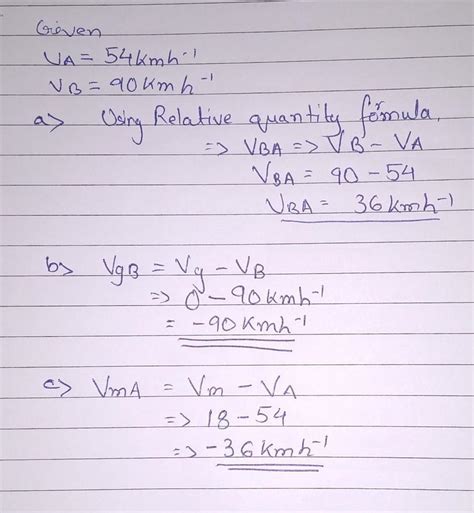 Given
VA = 54kmh⁻¹
VB = 90kmh⁻¹
a> Using Relative quantity formula,
=> VBA => VB - VA
VBA = 90 - 54
VBA = 36kmh⁻¹
b> VgB = Vg - VB
=> 0 - 90kmh⁻¹
= -90kmh⁻¹
c> VmA = Vm - VA
=> 18 - 54
=> -36kmh⁻¹